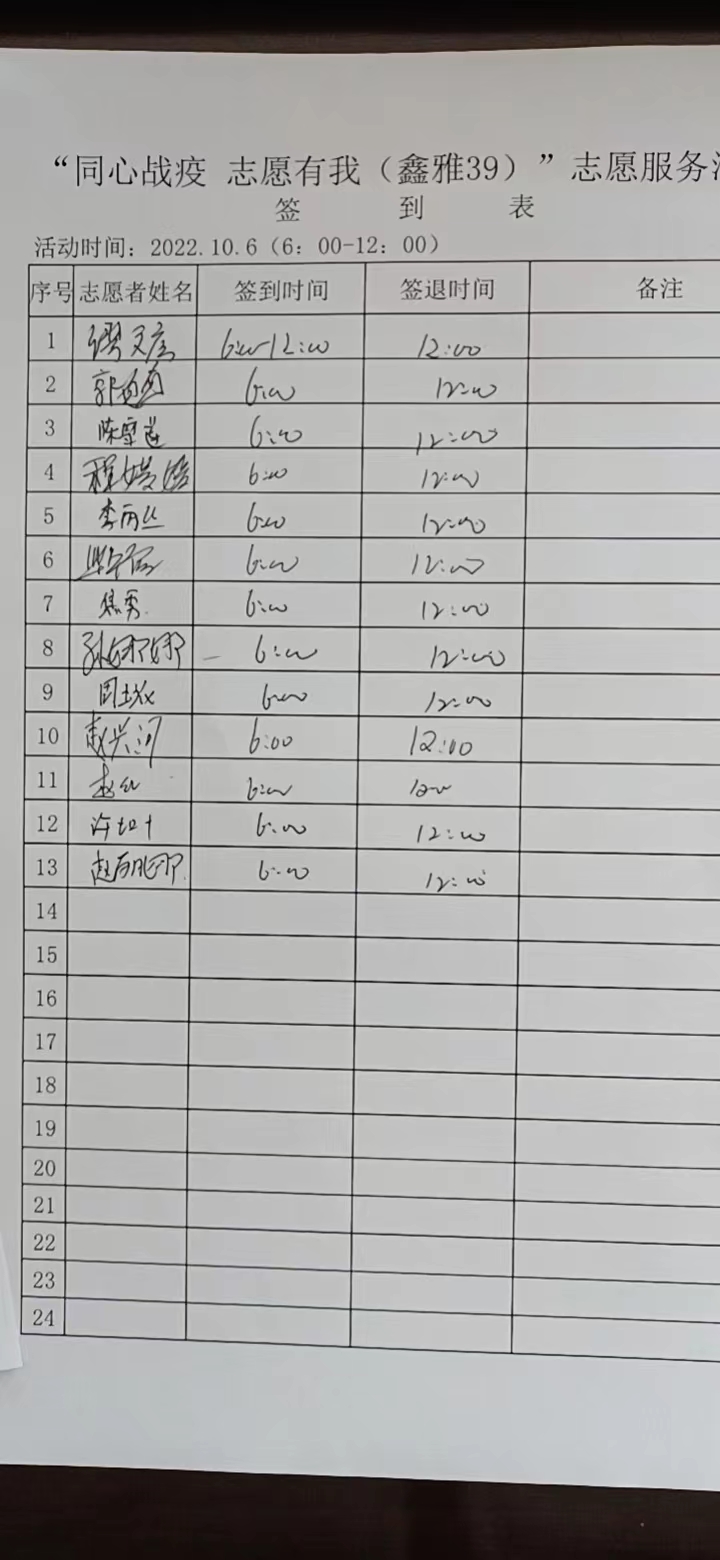 “同心战疫 志愿有我（鑫雅39）”志愿服务
签 到 表
活动时间：2022.10.6（6：00-12：00）
序号 志愿者姓名 签到时间 签退时间 备注
1 6:00-12:00 12:00
2 6:00 12:00
3 6:00 12:00
4 程嫈嫈 6:00 12:00
5 李丙丛 6:00 12:00
6 6:00 12:00
7 焦勇 6:00 12:00
8 孙娜娜 6:00 12:00
9 周 6:00 12:00
10 赵兴河 6:00 12:00
11 赵 6:00 1200
12 许 6:00 12:00
13 赵丽娜 6:00 12:00
14
15
16
17
18
19
20
21
22
23
24